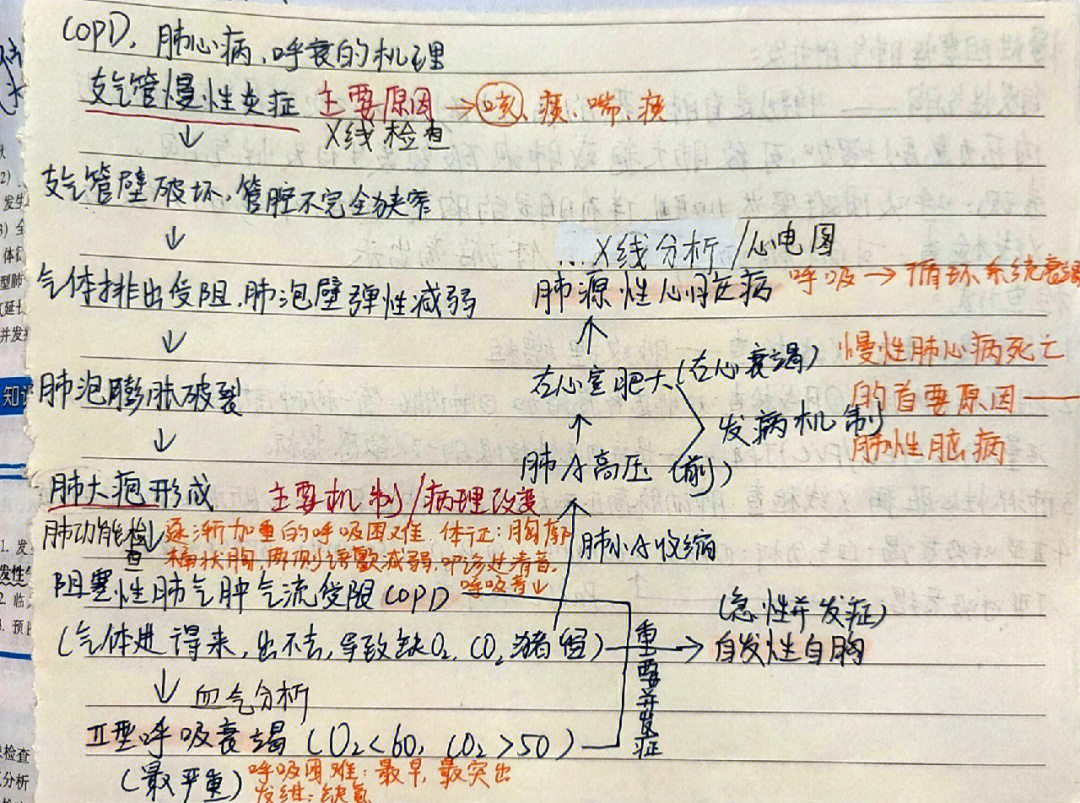 COPD、肺心病、呼衰的机理
支气管慢性炎症 主要原因 → 咳、痰、喘、痰
X线检查
↓
支气管壁破坏、管腔不完全狭窄
↓
气体排出受阻,肺泡壁弹性减弱
↓
肺泡膨胀破裂
↓
肺大疱形成 主要机制/病理改变
肺功能检查↓ 逐渐加重的呼吸困难 体征:胸廓
桶状胸,两侧语颤减弱,叩诊过清音,
呼吸音↓
阻塞性肺气肿气流受限COPD
(气体进得来,出不去,导致缺O₂,CO₂潴留)
↓ 血气分析
Ⅱ型呼吸衰竭(O₂<60,CO₂>50)
(最严重) 呼吸困难:最早,最突出
发绀:缺氧
重要并发症
→ (急性并发症)
自发性自胸
肺小A收缩
↑
肺A高压(前)
↑
右心室肥大(右心衰竭)
发病机制
↑
肺源性心脏病 呼吸→循环系统衰竭
X线分析/心电图
慢性肺心病死亡
的首要原因——
肺性脑病
2)
发生
3) 全
体
型肺
延长
并发
知识
1. 发
发性
2. 临
3. 预
检查
分析